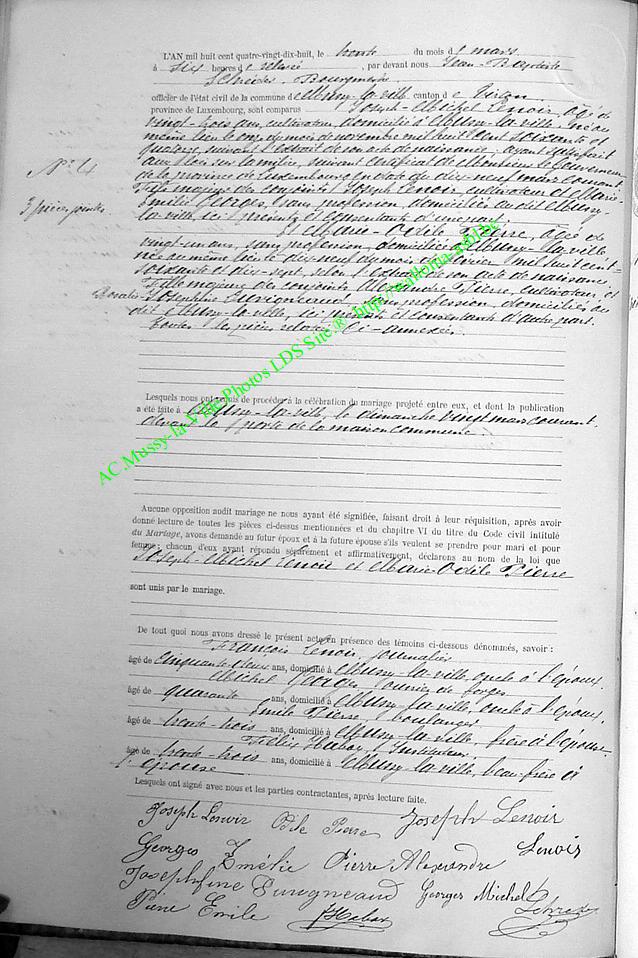 L'AN mil huit cent quatre-vingt-dix-huit, le trente du mois de mars
à six heures de relevé, par devant nous Jean-Baptiste
Schréder, Bourgmestre
officier de l'état civil de la commune de Mussy-la-ville canton de Virton
province de Luxembourg, sont comparus Joseph-Michel Lenoir, âgé de
vingt-trois ans, cultivateur, domicilié à Mussy-la-ville, né au
même lieu le onze du mois de novembre mil huit cent soixante et
quatorze, suivant l'extrait de son acte de naissance, ayant satisfait
aux lois sur la milice, suivant certificat de Monsieur le Gouverneur
de la province de Luxembourg en date du dix-neuf mars courant.
N° 4
Fils majeur des conjoints Joseph Lenoir, cultivateur et Marie-
3 pièces jointes
Emélie Georges, sans profession, domiciliés au dit Mussy-
la-ville, ici présents et consentants d'une part.
Et Marie-Odile Pierre, âgé de
vingt-un ans, sans profession, domiciliée à Mussy-la-ville
née au même lieu le dix-neuf du mois de mil huit cent-
soixante et dix-sept, selon l'extrait de son acte de naissance.
Fille majeure des conjoints Alexandre Pierre, cultivateur et
Rosalie-Josephine sans profession, domiciliés au
dit Mussy-la-ville, ici présents et consentants d'autre part.
Toutes les pièces relatées ci-annexées
Lesquels nous ont requis de procéder à la célébration du mariage projeté entre eux, et dont la publication
a été faite à Mussy-la-ville, le dimanche vingt mars courant.
devant la porte de la maison commune.
AC.Mussy-la-Ville Photos LDS Site ® http://wallonia-asbl.be
Aucune opposition audit mariage ne nous ayant été signifiée, faisant droit à leur réquisition, après avoir
donné lecture de toutes les pièces ci-dessus mentionnées et du chapitre VI du titre du Code civil intitulé
du Mariage, avons demandé au futur époux et à la future épouse s'ils veulent se prendre pour mari et pour
femme ; chacun d'eux ayant répondu séparément et affirmativement, déclarons au nom de la loi que
Joseph-Michel Lenoir et Marie-Odile Pierre
sont unis par le mariage.
De tout quoi nous avons dressé le présent acte en présence des témoins ci-dessous dénommés, savoir :
François Lenoir, journalier
âgé de cinquante-deux ans, domicilié à Mussy-la-ville, oncle à l'époux.
Michel Georges, ouvrier de forges
âgé de quarante ans, domicilié à Mussy-la-ville, oncle à l'époux,
Emile Pierre, boulanger
âgé de trente-trois ans, domicilié à Mussy-la-ville, frère à l'épouse
Félix Habay, Instituteur
âgé de trente-trois ans, domicilié à Mussy-la-ville, beau-frère à
l'épouse
Lesquels ont signé avec nous et les parties contractantes, après lecture faite.
Joseph Lenoir Odile Pierre Joseph Lenoir
Georges Emélie Pierre Alexandre Lenoir
Josephine Georges Michel
Pierre Emile FHabay